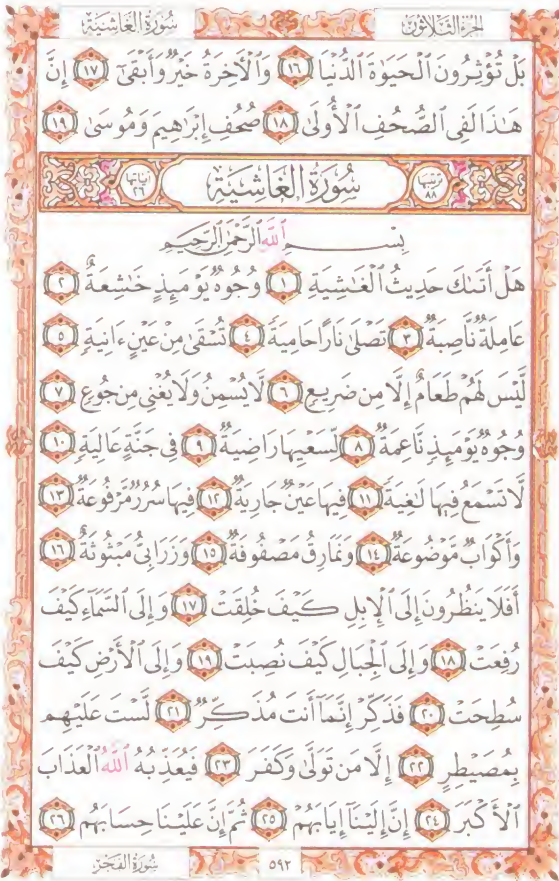 سُورَةُ الغَاشِيَةِ
الجُزءُ الثَّلَاثُونَ
بَلْ تُؤْثِرُونَ ٱلْحَيَوٰةَ ٱلدُّنْيَا ١٦ وَٱلْأَخِرَةُ خَيْرٌ وَأَبْقَىٰٓ ١٧ إِنَّ
هَـٰذَا لَفِى ٱلصُّحُفِ ٱلْأُولَىٰ ١٨ صُحُفِ إِبْرَٰهِيمَ وَمُوسَىٰ ١٩
ترتيبها ٨٨ سُورَةُ الغَاشِيَةِ آياتها ٢٦
بِسْمِ ٱللَّهِ ٱلرَّحْمَٰنِ ٱلرَّحِيمِ
هَلْ أَتَىٰكَ حَدِيثُ ٱلْغَـٰشِيَةِ ١ وُجُوهٌ يَوْمَئِذٍ خَـٰشِعَةٌ ٢
عَامِلَةٌ نَّاصِبَةٌ ٣ تَصْلَىٰ نَارًا حَامِيَةً ٤ تُسْقَىٰ مِنْ عَيْنٍ ءَانِيَةٍ ٥
لَّيْسَ لَهُمْ طَعَامٌ إِلَّا مِن ضَرِيعٍ ٦ لَّا يُسْمِنُ وَلَا يُغْنِى مِن جُوعٍ ٧
وُجُوهٌ يَوْمَئِذٍ نَّاعِمَةٌ ٨ لِّسَعْيِهَا رَاضِيَةٌ ٩ فِى جَنَّةٍ عَالِيَةٍ ١٠
لَّا تَسْمَعُ فِيهَا لَـٰغِيَةً ١١ فِيهَا عَيْنٌ جَارِيَةٌ ١٢ فِيهَا سُرُرٌ مَّرْفُوعَةٌ ١٣
وَأَكْوَابٌ مَّوْضُوعَةٌ ١٤ وَنَمَارِقُ مَصْفُوفَةٌ ١٥ وَزَرَابِىُّ مَبْثُوثَةٌ ١٦
أَفَلَا يَنظُرُونَ إِلَى ٱلْإِبِلِ كَيْفَ خُلِقَتْ ١٧ وَإِلَى ٱلسَّمَآءِ كَيْفَ
رُفِعَتْ ١٨ وَإِلَى ٱلْجِبَالِ كَيْفَ نُصِبَتْ ١٩ وَإِلَى ٱلْأَرْضِ كَيْفَ
سُطِحَتْ ٢٠ فَذَكِّرْ إِنَّمَآ أَنتَ مُذَكِّرٌ ٢١ لَّسْتَ عَلَيْهِم
بِمُصَيْطِرٍ ٢٢ إِلَّا مَن تَوَلَّىٰ وَكَفَرَ ٢٣ فَيُعَذِّبُهُ ٱللَّهُ ٱلْعَذَابَ
ٱلْأَكْبَرَ ٢٤ إِنَّ إِلَيْنَآ إِيَابَهُمْ ٢٥ ثُمَّ إِنَّ عَلَيْنَا حِسَابَهُم ٢٦
٥٩٢
سُورَةُ الفَجْرِ